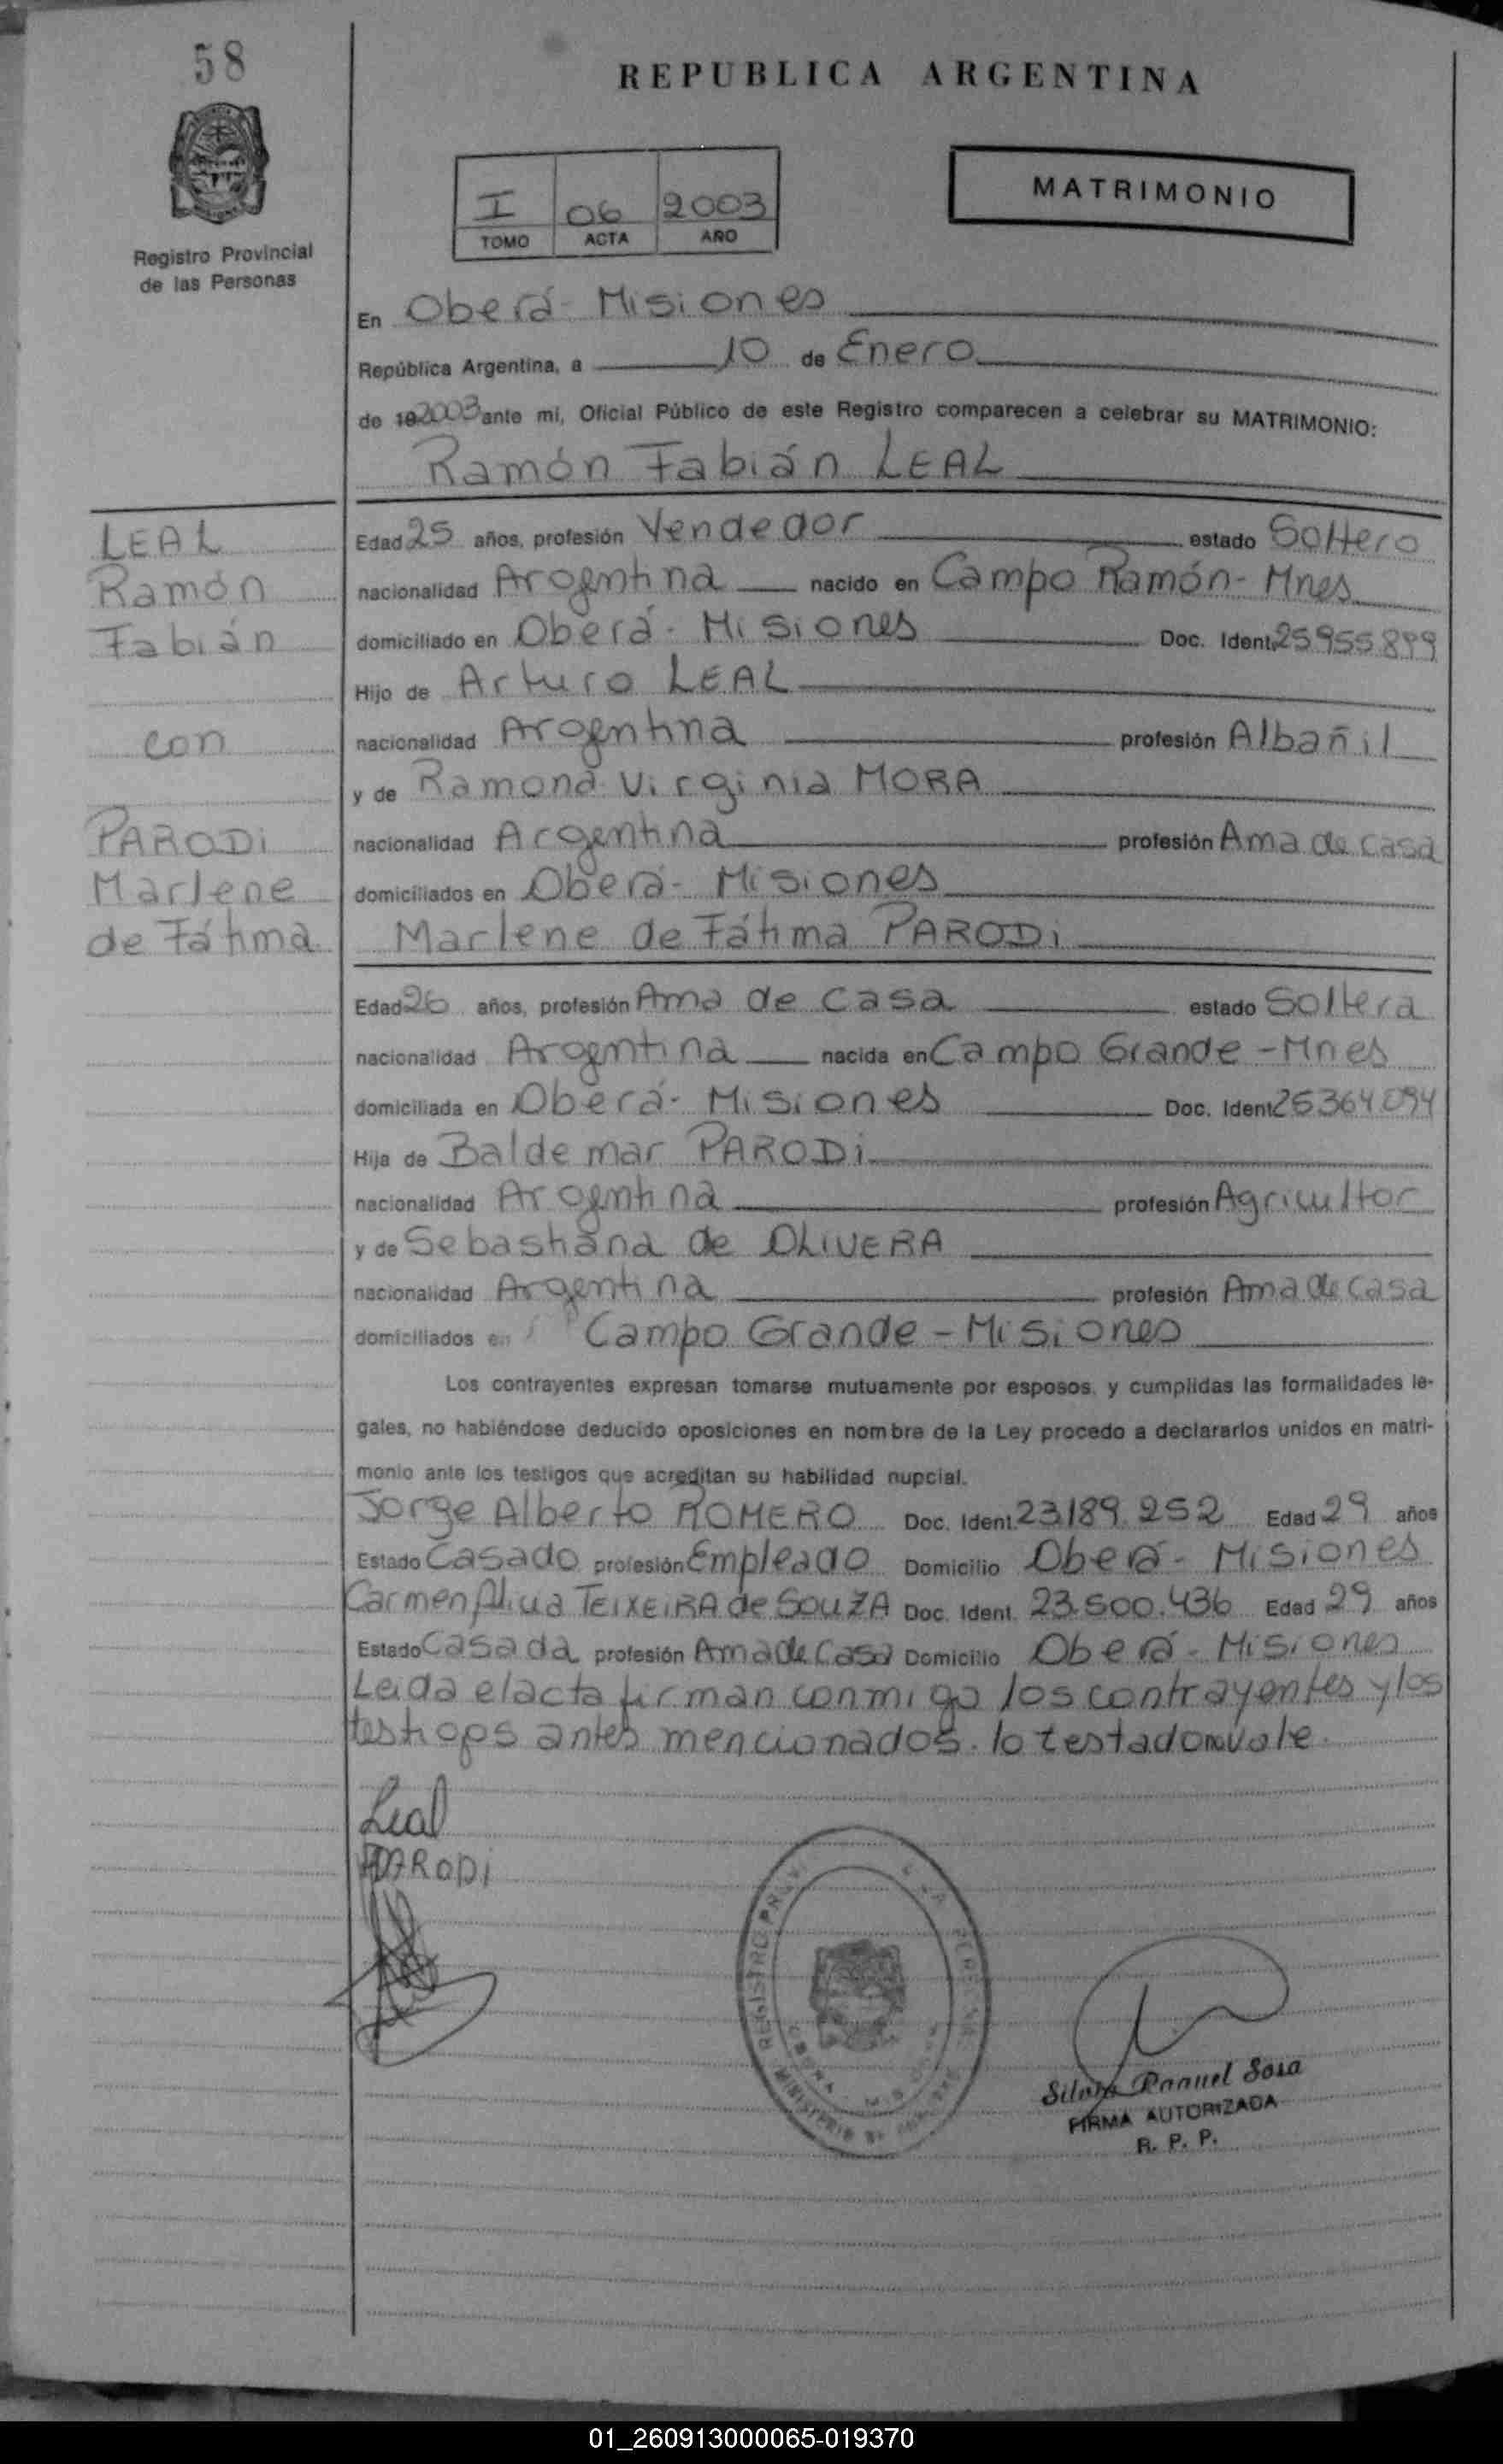 58
REPUBLICA ARGENTINA
I 06 2003
TOMO ACTA AÑO
MATRIMONIO
Registro Provincial
de las Personas
En Oberá - Misiones
República Argentina, a 10 de Enero
de 19 2003 ante mi, Oficial Público de este Registro comparecen a celebrar su MATRIMONIO:
Ramón Fabián LEAL
LEAL
Ramón
Fabián
con
PARODi
Marlene
de Fátima
Edad 25 años, profesión Vendedor estado Soltero
nacionalidad Argentina nacido en Campo Ramón - Mnes
domiciliado en Oberá - Misiones Doc. Ident. 25955899
Hijo de Arturo LEAL
nacionalidad Argentina profesión Albañil
y de Ramona Virginia MORA
nacionalidad Argentina profesión Ama de casa
domiciliados en Oberá - Misiones
Marlene de Fátima PARODi
Edad 26 años, profesión Ama de casa estado Soltera
nacionalidad Argentina nacida en Campo Grande - Mnes
domiciliada en Oberá - Misiones Doc. Ident. 25364094
Hija de Baldemar PARODi
nacionalidad Argentina profesión Agricultor
y de Sebastiana de OLIVERA
nacionalidad Argentina profesión Ama de casa
domiciliados en Campo Grande - Misiones
Los contrayentes expresan tomarse mutuamente por esposos, y cumplidas las formalidades le-
gales, no habiéndose deducido oposiciones en nombre de la Ley procedo a declararlos unidos en matri-
monio ante los testigos que acreditan su habilidad nupcial.
Jorge Alberto ROMERO Doc. Ident. 23.189.252 Edad 29 años
Estado Casado profesión Empleado Domicilio Oberá - Misiones
Carmen Alicia TEIXEIRA de SOUZA Doc. Ident. 23.500.436 Edad 29 años
Estado Casada profesión Ama de Casa Domicilio Oberá - Misiones
Leida el acta firman conmigo los contrayentes y los
testigos antes mencionados. lo testado no vale.
Leal
PARODi
REGISTRO
MINISTERIO
Manuel Sosa
FIRMA AUTORIZADA
R. P. P.
01_260913000065-019370